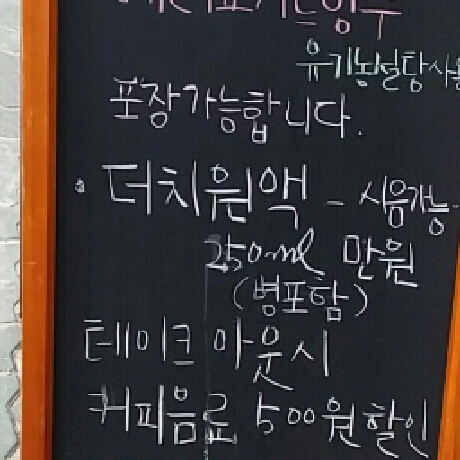 유기농설탕사용
포장가능합니다.
· 더치원액 - 시음가능
250ml 만원
(병포함)
테이크 아웃시
커피음료 500원할인